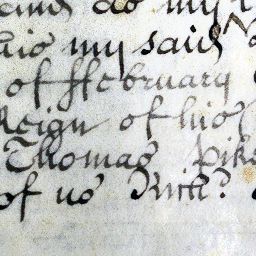 do my
my said
of ffebruary
Reign of his
Thomas Pike
of us Rich: